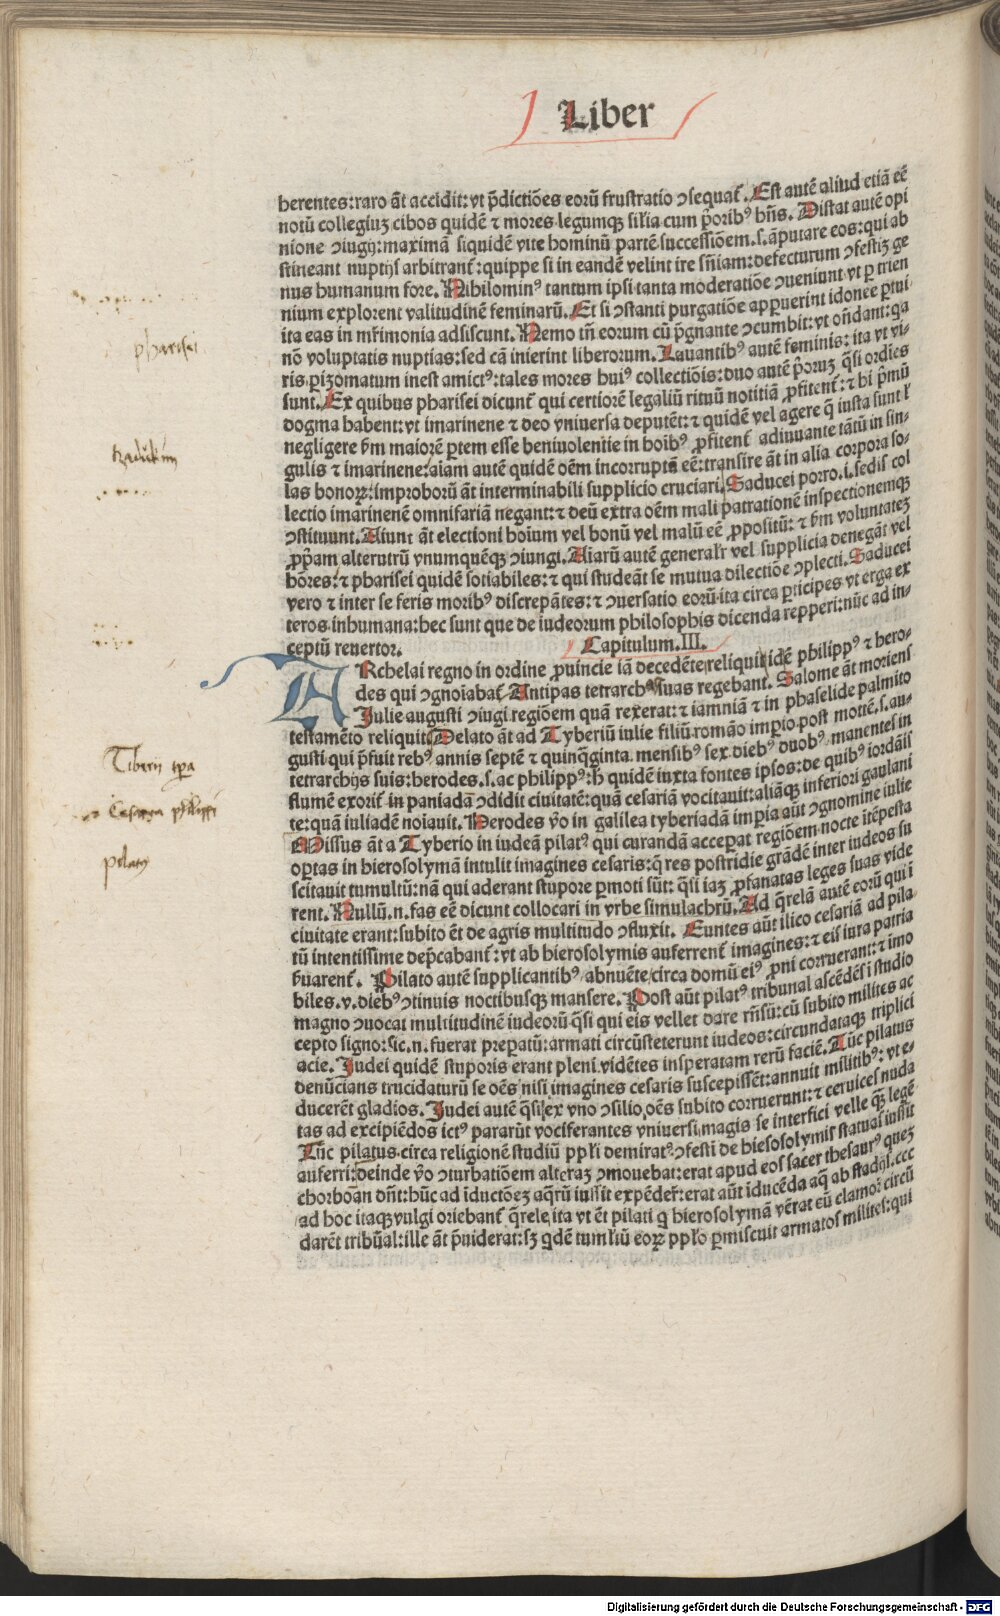 Liber
herentes:raro āt accidit:vt p̄dictiōes eorū frustratio ꝯsequat᷑. Est autē aliud etiā eē
notū collegiuꝫ cibos quidē ⁊ mores legumqꝫ silīa cum p̄oribꝰ hn̄s. Distat autē opi
nione ꝯiugij:maximā siquidē vite hominū partē successiōem.s.āputare eos:qui ab
stineant nuptijs arbitrant᷑:quippe si in eandē velint ire sn̄iam:defecturum ꝯfestiꝫ ge
nus humanum fore. Nihilominꝰ tantum ipsi tanta moderatiōe ꝯueniunt vt ꝑ trien
nium explorent valitudinē feminarū. Et si ꝯstanti purgatiōe apꝑuerint idonee ꝑtui
ita eas in mr̄imonia adsiscunt. Nemo tn̄ eorum cū p̄gnante ꝯcumbit:vt on̄dant:qa
nō voluptatis nuptias:sed cā inierint liberorum. Lauantibꝰ autē feminis:ita vt vi-
ris ꝑizomatum inest amictꝰ:tales mores huiꝰ collectiōis:duo autē p̄oruꝫ q̄si ordīes
sunt. Ex quibus pharisei dicunt᷑ qui certiorē legaliū rituū notitiā ꝓfitent᷑:⁊ hi p̄mū
dogma habent:vt imarinene ⁊ deo vniuersa deputēt:⁊ quidē vel agere q̄ iusta sunt l᷑
negligere ẜm maiorē ꝑtem esse beniuolentie in hoībꝰ ꝓfitent᷑ adiuuante tātū in sin-
gulis ⁊ imarinene:aiam autē quidē oēm incorruptā eē:transire āt in alia corpora so-
las bonoꝝ:improborū āt interminabili supplicio cruciari. Saducei porro.i.sedis col
lectio imarinenē omnifariā negant:⁊ deū extra oēm mali patrationē inspectionemqꝫ
ꝯstituunt. Aiunt āt electioni hoium vel bonū vel malū eē ꝓpositū:⁊ ẜm voluntateꝫ
ꝓpām alterutrū vnumquēqꝫ ꝯiungi. Aiarū autē general᷑r vel supplicia denegāt vel
hōres:⁊ pharisei quidē sotiabiles:⁊ qui studeāt se mutua dilectiōe ꝯplecti. Saducei
vero ⁊ inter se feris moribꝰ discrepātes:⁊ ꝯuersatio eorū ita circa ꝑticipes vt erga ex
teros inhumana:hec sunt que de iudeorum philosophis dicenda repperi:nūc ad in-
ceptū reuertor. Capitulum.III.
ARchelai regno in ordine ꝓuincie iā decedēte reliqui idē philippꝰ ⁊ hero-
des qui ꝯgnoiabat᷑ Antipas tetrarchias suas regebant. Salome āt moriens
Iulie augusti ꝯiugi regiōem quā rexerat:⁊ iamniā ⁊ in phaselide palmito
testamēto reliquit. Delato āt ad Tyberiū iulie filiū romāo imꝑio post mottē.s.au-
gusti qui p̄fuit rebꝰ annis septē ⁊ quinq̄ginta.mensibꝰ sex diebꝰ duobꝰ manentes in
tetrarchijs suis:herodes.s.ac philippꝰ:h̄ quidē iuxta fontes ipsos:de quibꝰ iordāis
flumē exorit᷑ in paniada ꝯdidit ciuitatē:quā cesariā vocitauit:aliāqꝫ inferiori gaulani
te:quā iuliadē noiauit. Herodes v̄o in galilea tyberiadā imꝑia aūt ꝯgnomine iulie
Missus āt a Tyberio in iudeā pilatꝰ qui curandā acceꝑat regiōem nocte itēpesta
oꝑtas in hierosolymā intulit imagines cesaris:q̄ res postridie grādē inter iudeos su
scitauit tumultū:nā qui aderant stupore ꝑmoti sūt:q̄si iaꝫ ꝓfanatas leges suas vide
rent. Nullū.n.fas eē dicunt collocari in vrbe simulachrū. Ad q̄relā autē eorū qui ī
ciuitate erant:subito ēt de agris multitudo ꝯfluxit. Euntes aūt ilico cesariā ad pila
tū intentissime dep̄cabant᷑:vt ab hierosolymis auferrent᷑ imagines:⁊ eis iura patria
ẜuarent᷑. Pilato autē supplicantibꝰ abnuēte circa domū eiꝰ ꝓni corruerant:⁊ imo
biles.v.diebꝰ ꝯtinuis noctibusqꝫ mansere. Post aūt pilatꝰ tribunal ascēdēs ī studio
magno ꝯuocat multitudinē iudeorū q̄si qui eis vellet dare rn̄sū:cū subito milites ac
cepto signo:sic.n.fuerat preparatū:armati circūsteterunt iudeos:circundataqꝫ triplici
acie. Iudei quidē stuporis erant pleni vidētes insperatam rerū faciē. Tūc pilatus
denūcians trucidaturū se oēs nisi imagines cesaris suscepissēt:annuit militibꝰ:vt e-
ducerēt gladios. Iudei autē q̄si ex vno ꝯsilio oēs subito corruerunt:⁊ ceruices nuda
tas ad excipiēdos ictꝰ pararūt vociferantes vniuersi magis se interfici velle qꝫ legē
Tūc pilatus circa religionē studiū ppl̄i demiratꝰ:ꝯfesti de hiesosolymis statuaī iussit
auferri:deinde v̄o ꝯturbatiōem alteraꝫ ꝯmouebat:erat apud eos sacer thesaurꝰ queꝫ
chorboan dn̄t:hūc ad īductōeꝫ aq̄rū iussit expēder᷑:erat aūt īducēda aq̄ ab stadijs.ccc
ad hoc itaqꝫ vulgi oriebant᷑ q̄rele ita vt ēt pilati q hierosolymā vērat eū clamor᷑ circū
darēt tribūal:ille āt p̄uiderat:sꝫ qdē tumltū eoꝝ ppl̄o ꝑmiscuit armatos milites:qui
pharisei
Tiberii
Cesarea philippi
pilatus
Digitalisierung gefördert durch die Deutsche Forschungsgemeinschaft - DFG